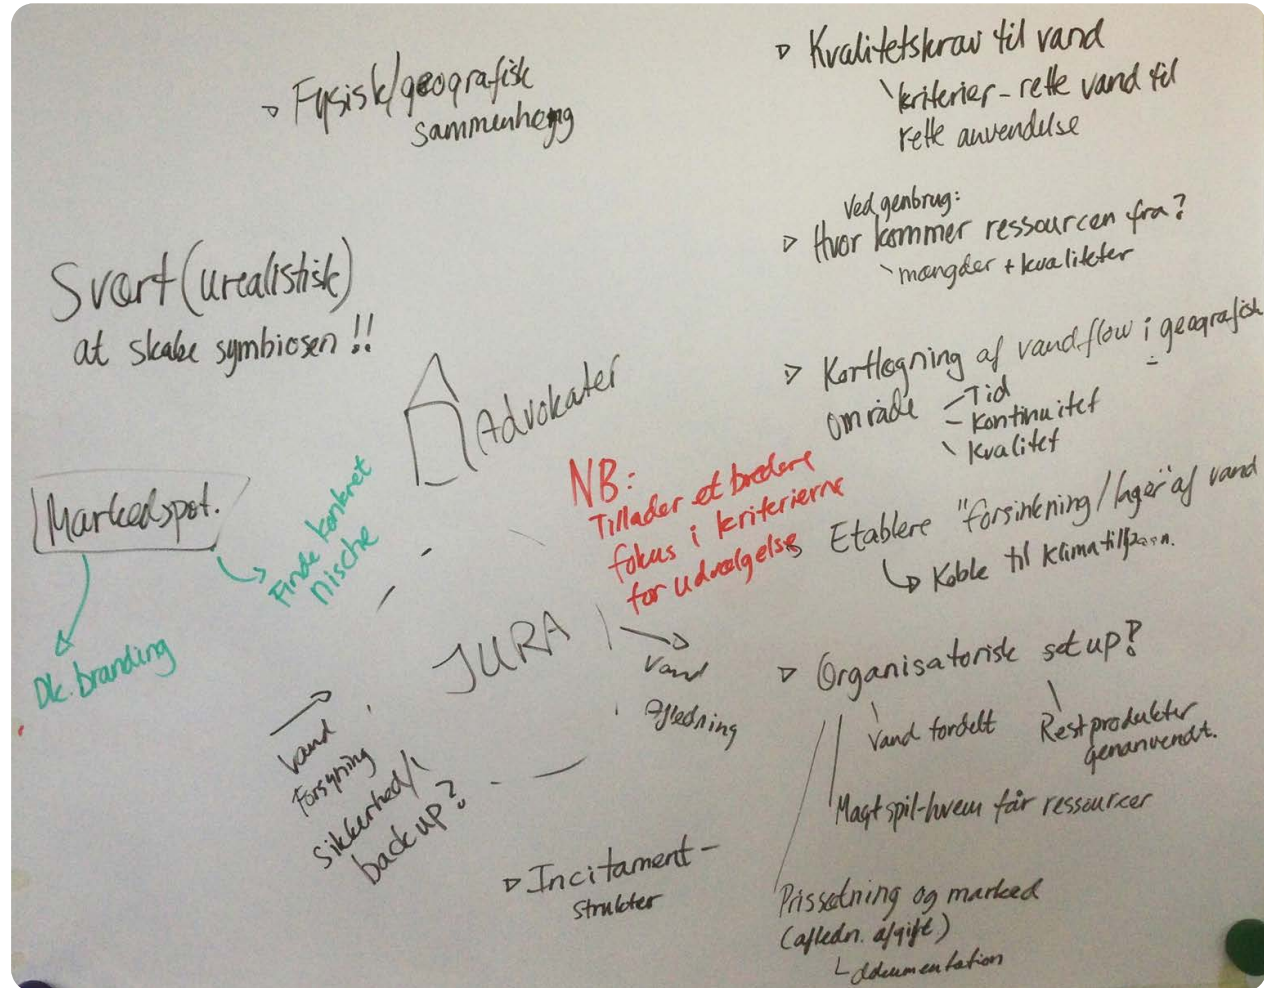 ▷ Fysisk/geografisk
sammenhæng
Svært (urealistisk)
at skabe symbiosen !!
Advokater
Markedspot.
Finde konkret
nische
Dk. branding
NB:
Tillader et bredere
fokus i kriterierne
for udvælgelse
JURA
Vand
Afledning
Vand
Forsyning
sikkerhed/
back up?
▷ Incitament-
strukter
▷ Kvalitetskrav til vand
kriterier - rette vand til
rette anvendelse
Ved genbrug:
▷ Hvor kommer ressourcen fra?
mængder + kvaliteter
▷ Kortlægning af vandflow i geografisk
område
- Tid
- Kontinuitet
\ Kvalitet
Etablere "forsinkning/lager" af vand
↳ Koble til klimatilpasn.
▷ Organisatorisk set up?
Vand fordelt
Restprodukter
genanvendt.
Magtspil-hvem får ressourcer
Prissætning og marked
(afledn. afgift)
└ dokumentation